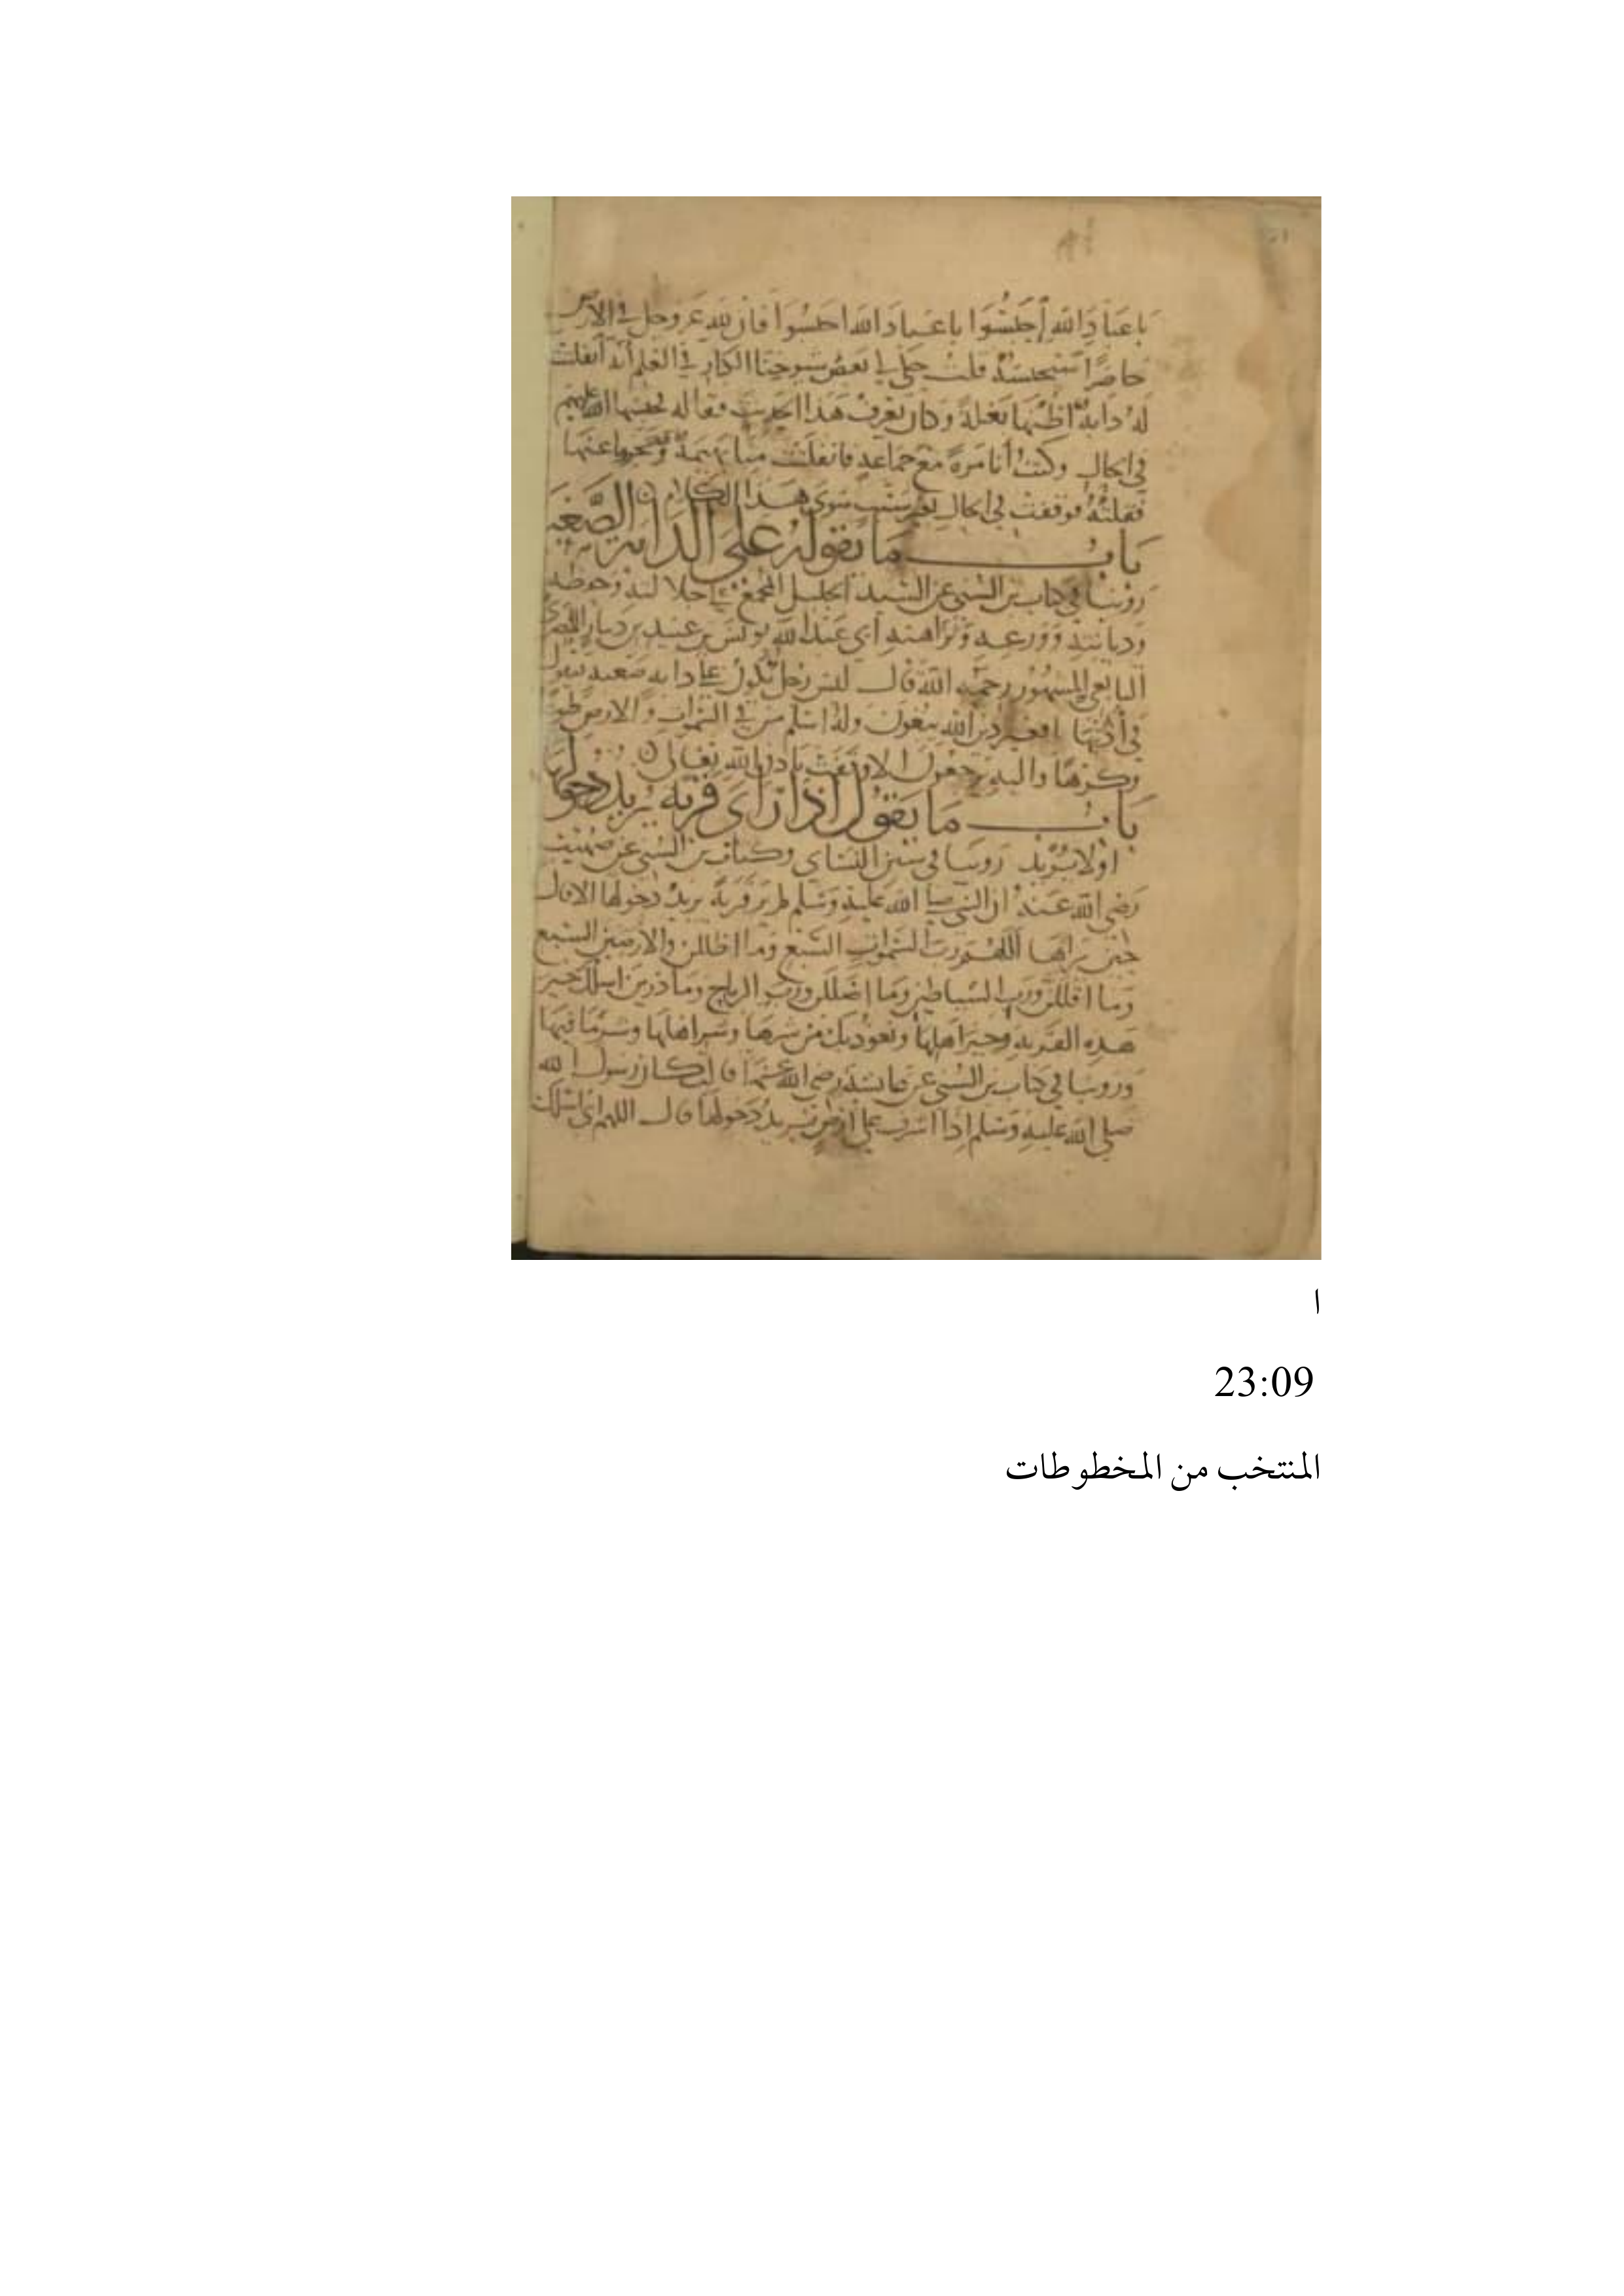 يا عباد الله احبسوا يا عباد الله احبسوا فان لله عز وجل في الارض
حاضرا سيحبسه قلت حكى لي بعض شيوخنا الكبار في العلم أنه أنفلتت
له دابة أظنها بغلة وكان يعرف هذا الحديث فقاله فحبسها الله عليهم
في الحال وكنت أنا مرة مع جماعة فانفلتت منا بهيمة وعجزوا عنها
فقلته فوقفت في الحال بغير سبب سوى هذا الكلام
باب ما يقوله على الدابة الصعبة
روينا في كتاب بن السني عن السيد الجليل المجمع على جلالته وحفظه
وديانته وورعه ونزاهته أبي عبد الله يونس بن عبيد بن دينار البصري
التابعي المشهور رحمه الله قال ليس رجل يكون على دابة صعبة فيقول
في أذنها افغير دين الله يبغون وله اسلم من في السموات والارض طوعا
وكرها واليه يرجعون الا وقفت باذن الله تعالى
باب ما يقول اذا راى قرية يريد دخولها
أولا يريد روينا في سنن النساي وكتاب بن السني عن صهيب
رضي الله عنه ان النبي صلى الله عليه وسلم لم ير قرية يريد دخولها الا قال
حين يراها اللهم رب السموات السبع وما اظللن والارضين السبع
وما اقللن ورب الشياطين وما اضللن ورب الرياح وما ذرين اسلك خير
هذه القرية وخير اهلها ونعوذ بك من شرها وشر اهلها وشر ما فيها
وروينا في كتاب بن السني عن عائشة رضي الله عنها قالت كان رسول الله
صلى الله عليه وسلم إذا اشرف على ارض يريد دخولها قال اللهم اني اسلك
ا
23:09
المنتخب من المخطوطات